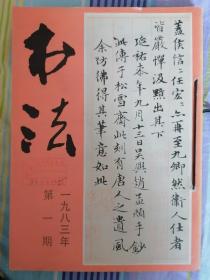 书法
一九八三年
第一期
蓋侯信〻任宏〻亦再至九卿然衛人仕者
皆嚴憚汲黯出其下
延祐柒年九月十三日吳興趙孟頫手鈔
此傳于松雪齋此刻有唐人之遺風
余仿佛得其筆意如此